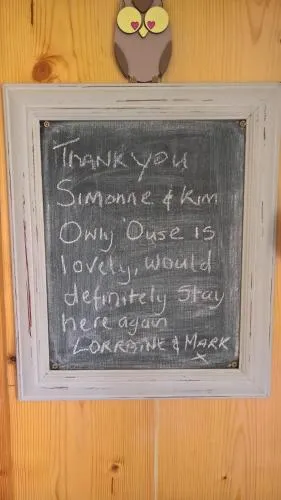 THANK YOU
SIMONNE & KIM
OWLY 'OUSE IS
lovely, would
definitely stay
here again
LORRAINE & MARK
x